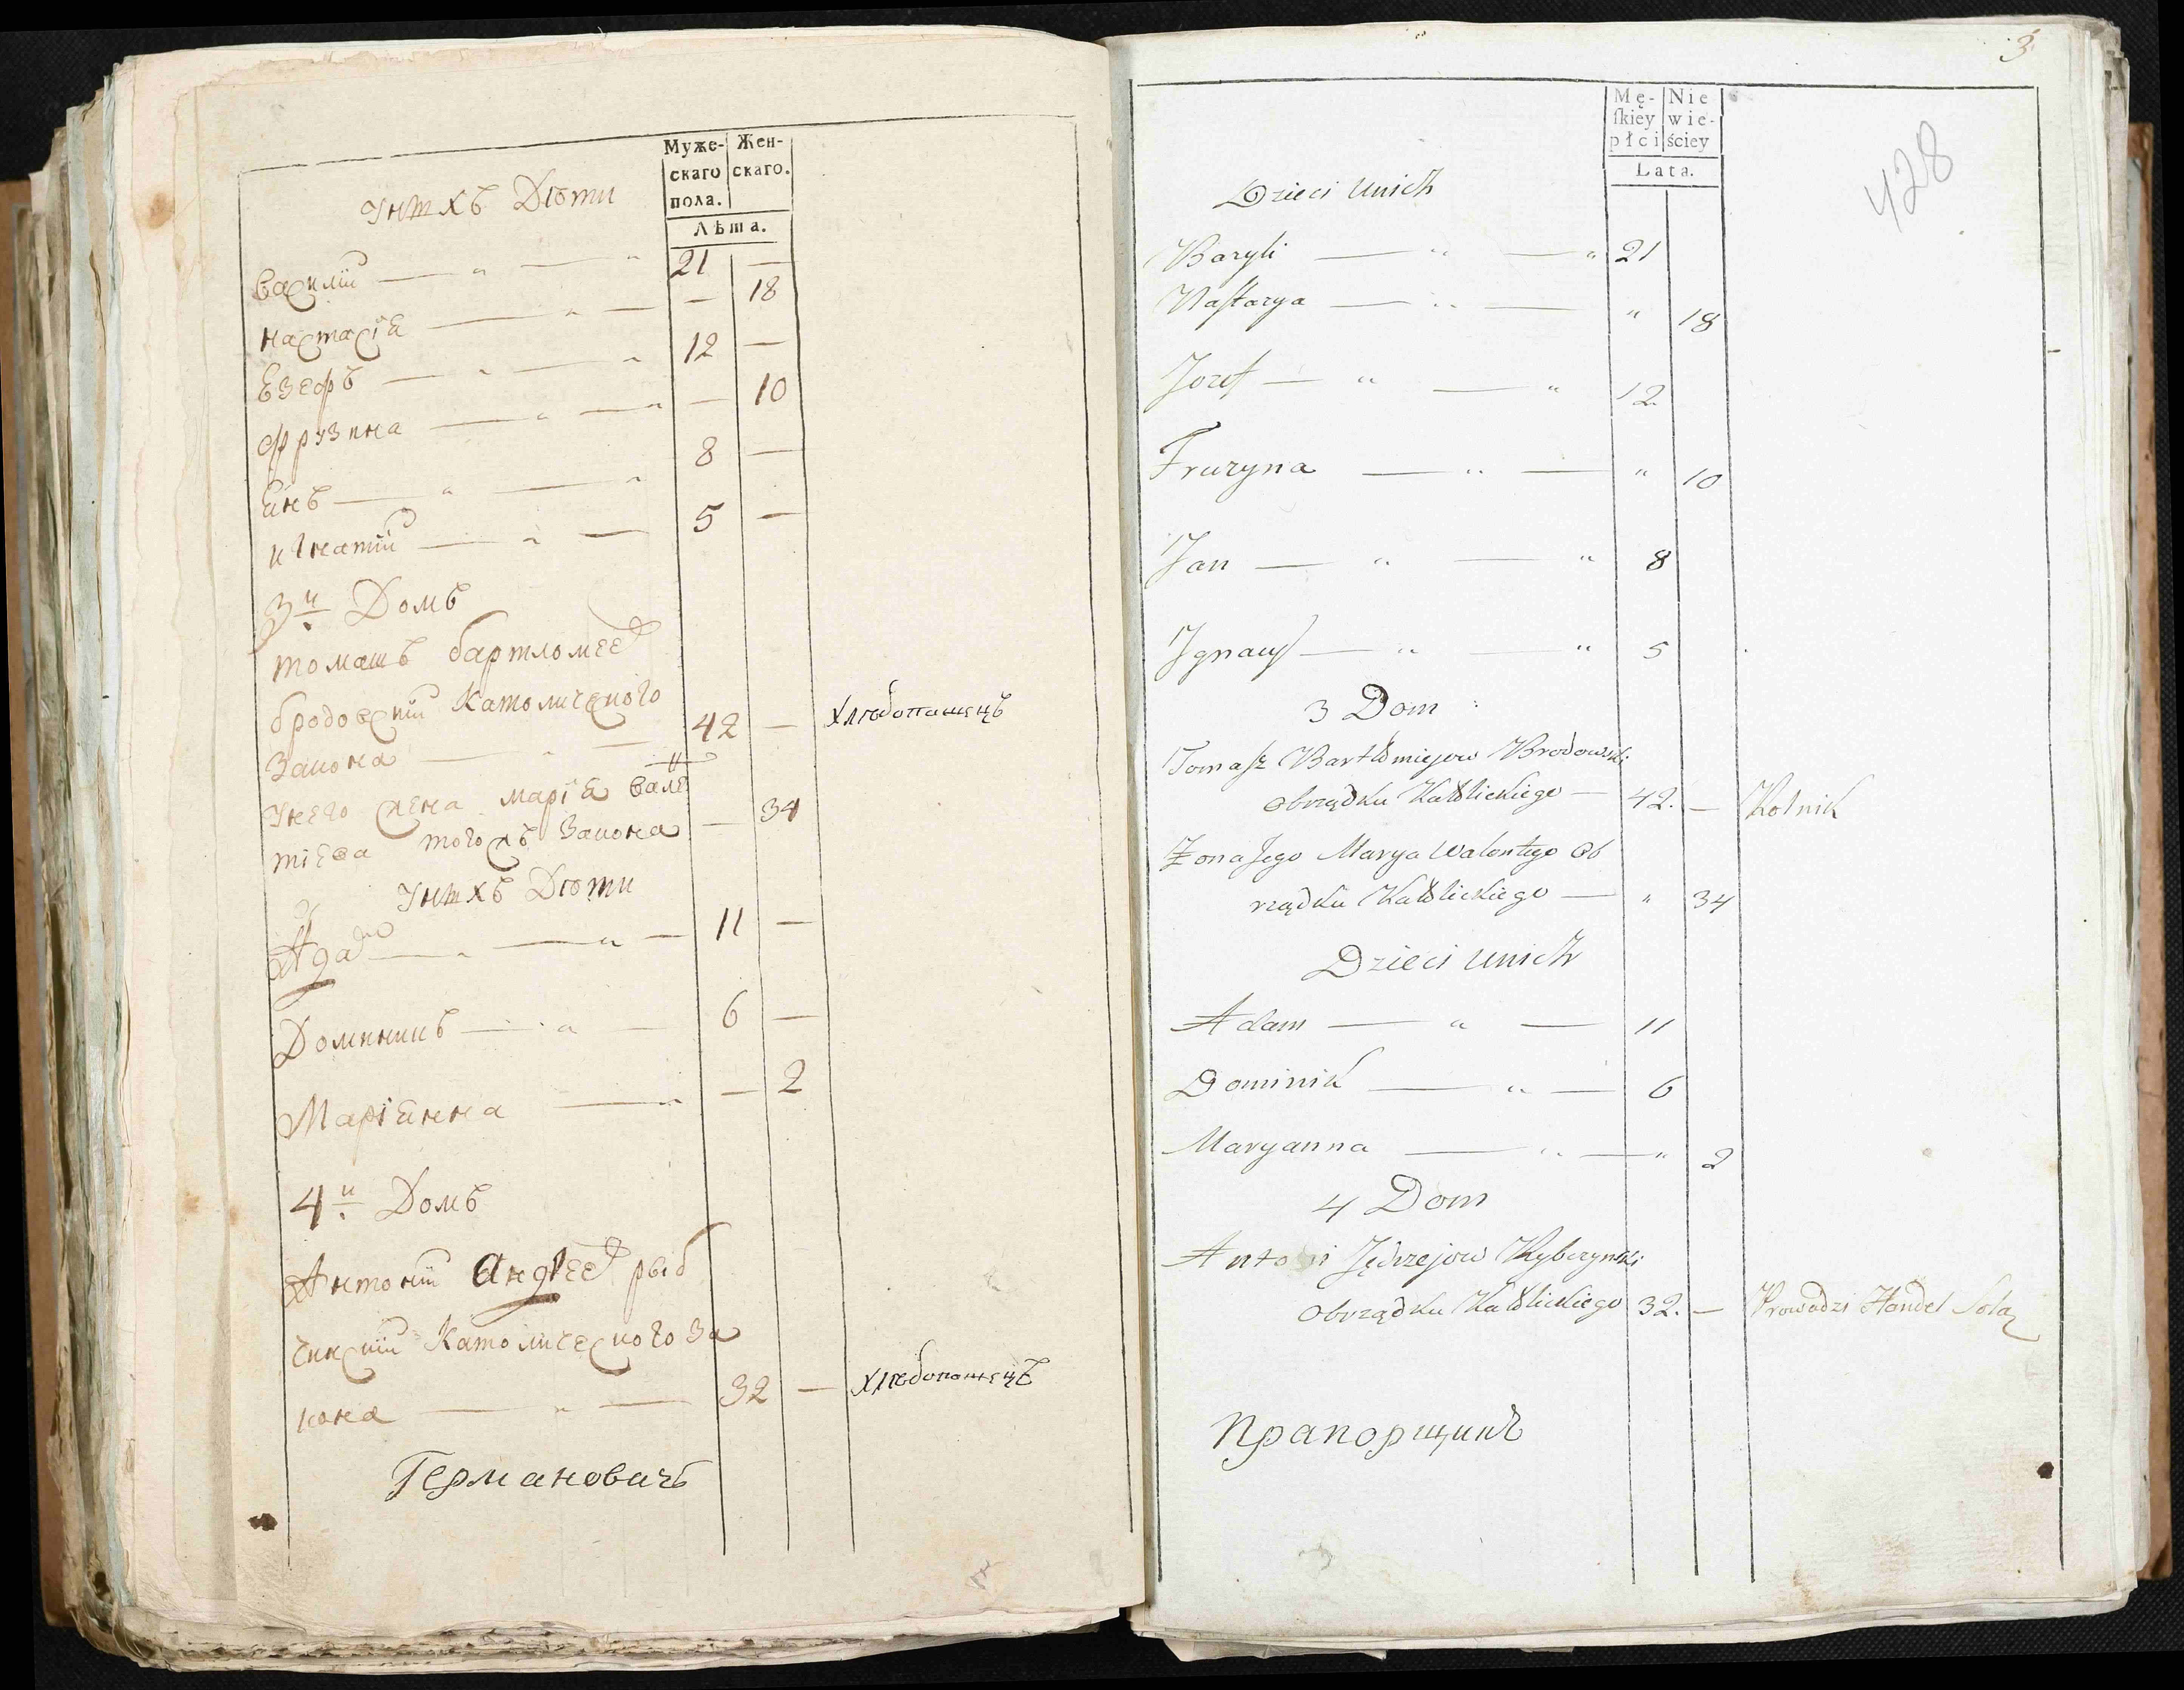 Муже- Жен-
скаго скаго.
пола.
Лѣта.
Унихъ Дѣти
василій — „ — „ 21 —
настасіа — „ — — 18
Езефъ — „ — „ 12 —
фрузина — „ — „ — 10
Янъ — „ — „ 8 —
игнатій — „ — 5 —
3й Домъ
томашъ бартломеев
бродовский Католического
Закона — „ — 42 — Хлѣбопашецъ
Унего жена маріа вален
тіева тогожъ Закона — 34
Унихъ Дѣти
Адам — „ — „ — 11 —
Доминикъ — „ — 6 —
Маріанна — „ — 2
4й Домъ
Антоній Андреев рыб
чинский Католического За
кона — „ — 32 — Хлѣбопашецъ
Германовичъ
3
428
Mę- Nie
ſkiey wie-
płci ściey
Lata.
Dzieci unich
Bazyli — „ — „ 21
Naſtazya — „ — „ 18
Jozef — „ — „ 12.
Fruzyna — „ — „ 10
Jan — „ — „ 8
Jgnacy — „ — „ 5
3 Dom
Tomaſz Bartłomiejow Brodowski
Obrządku Katolickiego — 42. — Rolnik
Żona Jego Marya Walentego Ob
rządku Katolickiego — „ 34
Dzieci unich
Adam — „ — 11
Dominik — „ — 6
Maryanna — „ — „ 2
4 Dom
Antoni Jędrzejow Rybczynski
Obrządku Katolickiego 32. — Prowadzi Handel Solą
Прапорщикъ